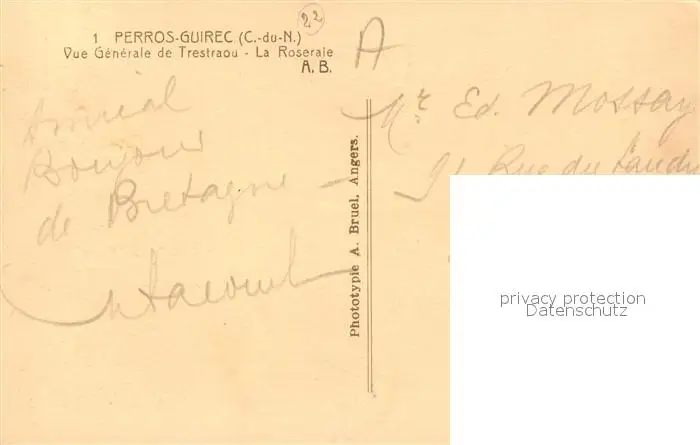 22
1 PERROS-GUIREC (C.-du-N.)
Vue Générale de Trestraou - La Roseraie
A.B.
A
Amical
Bonjour
de Bretagne
Mr Ed. Mossay
91 Rue du
Phototypie A. Bruel, Angers.
privacy protection
Datenschutz